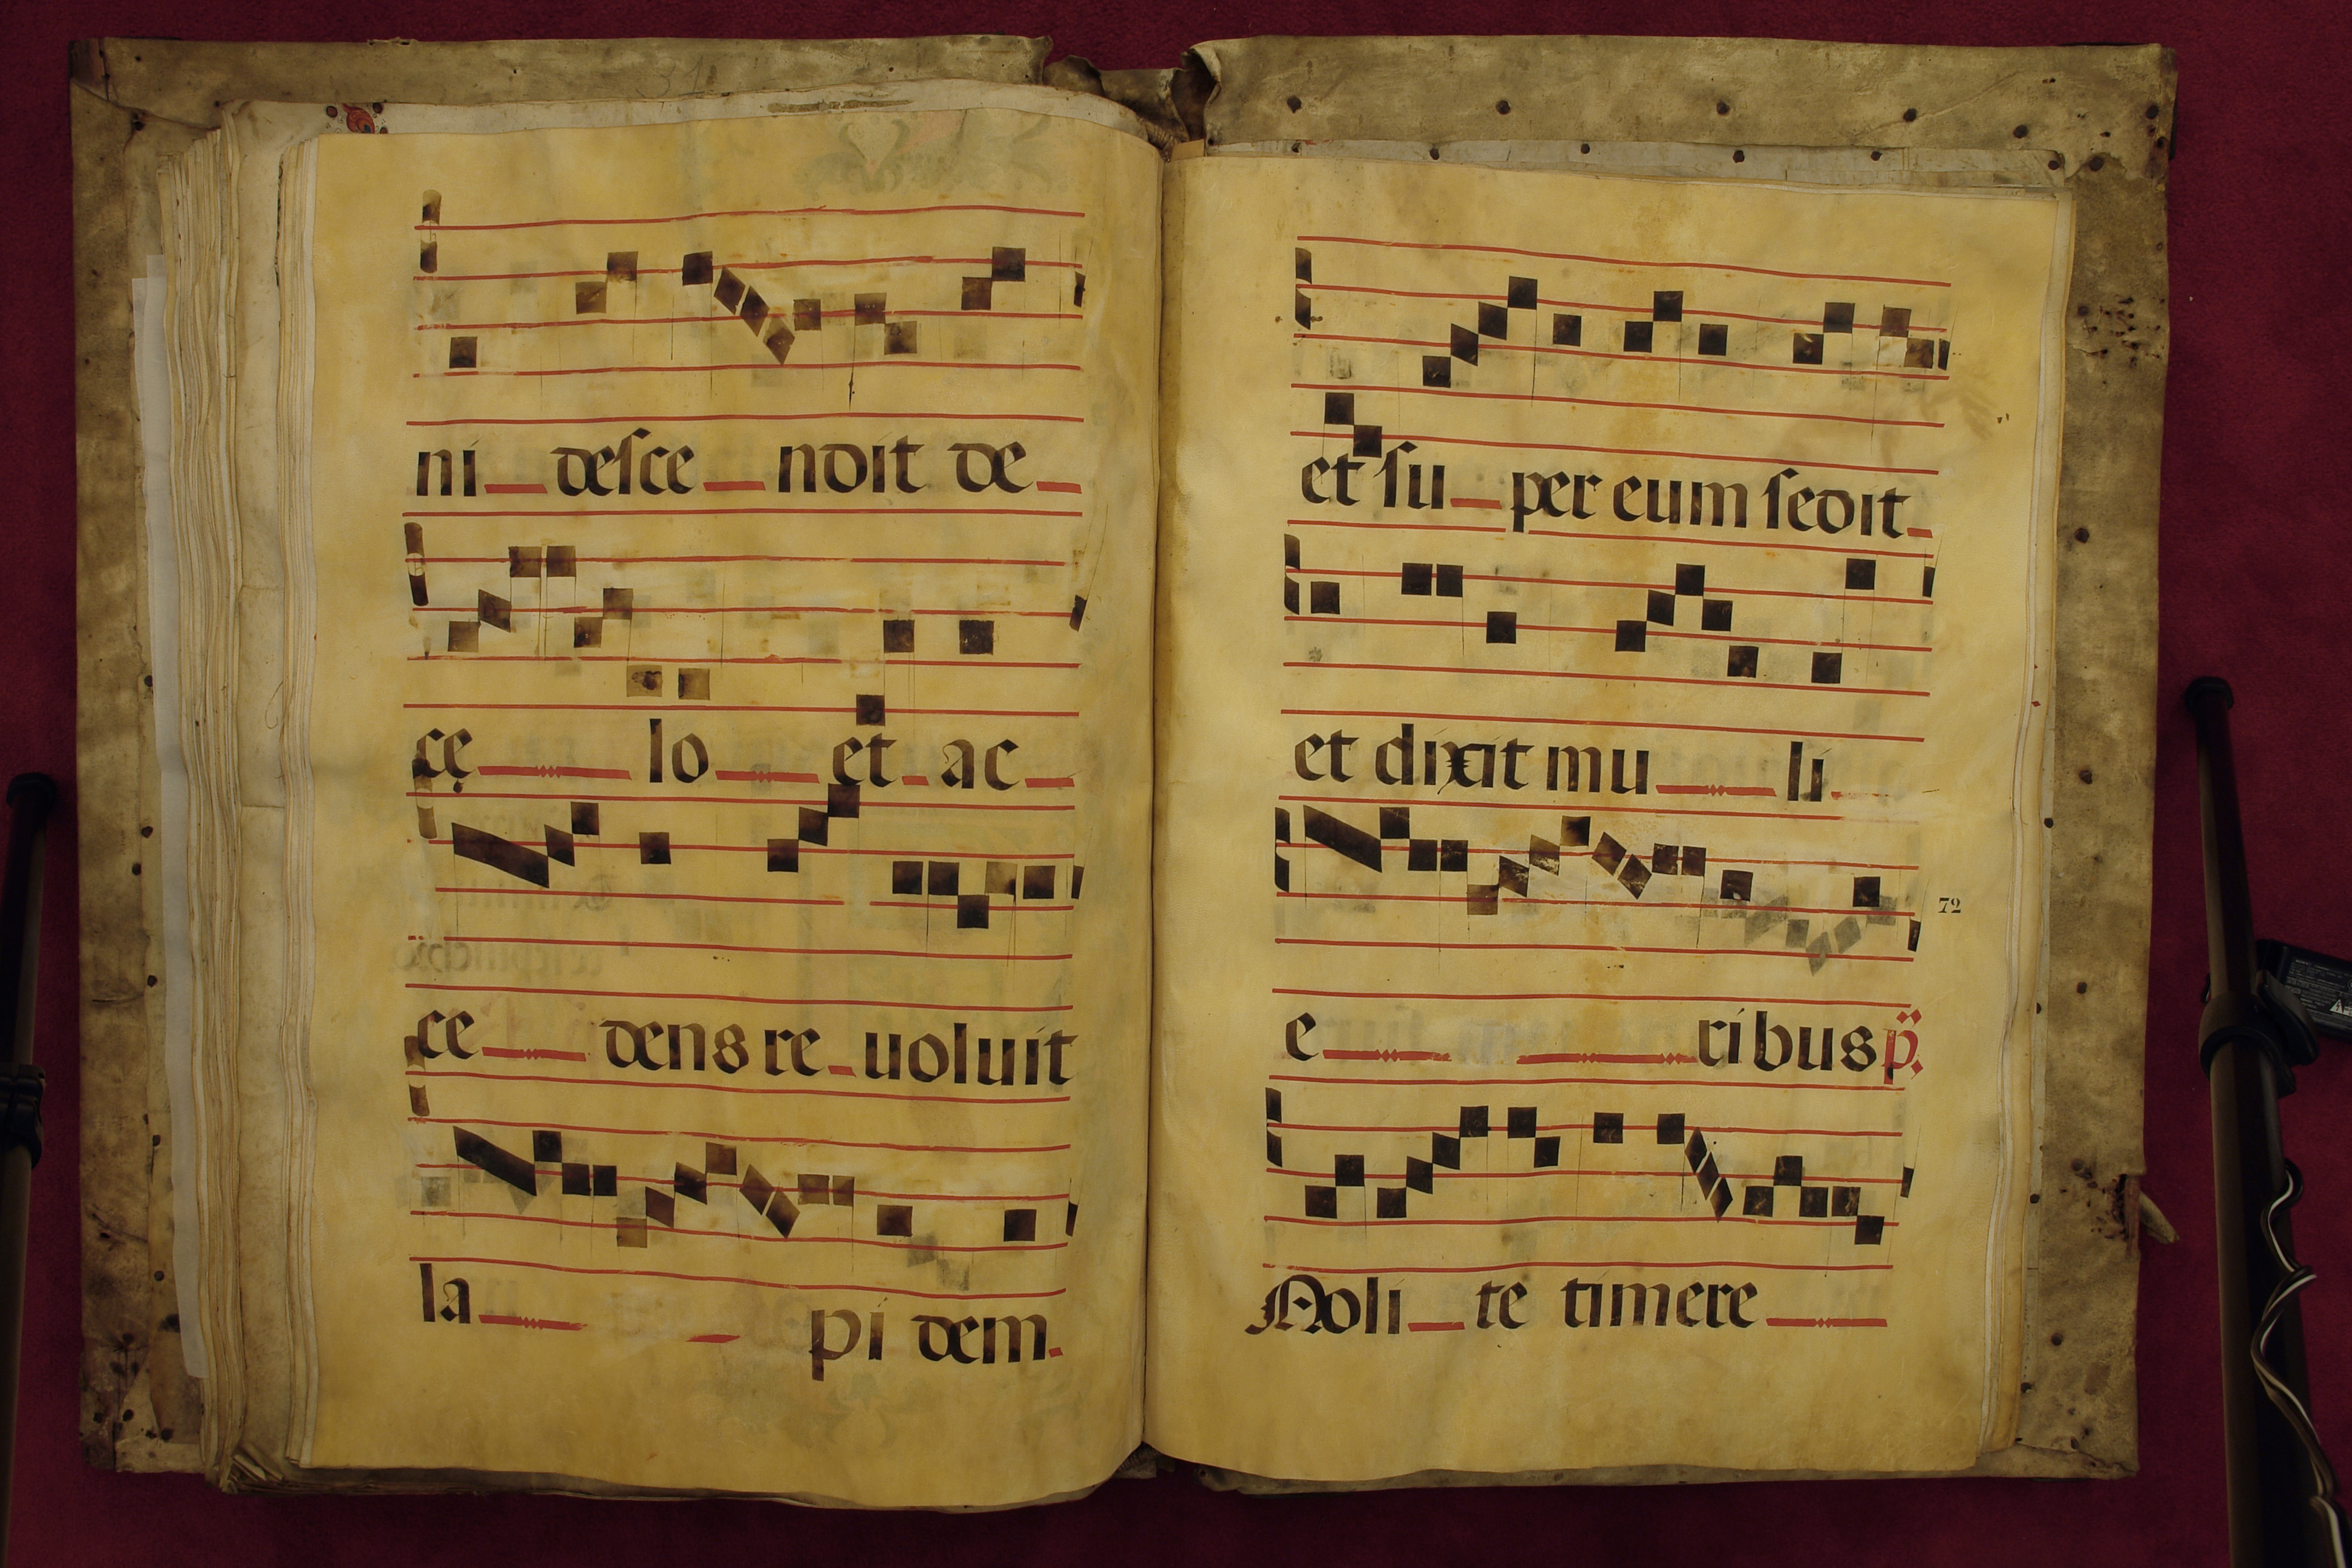 ni descendit de
cę lo et ac
ce dens re uoluit
la pi dem.
et su per eum sedit
et dixit mu li
72
e ribus p̈.
Noli te timere